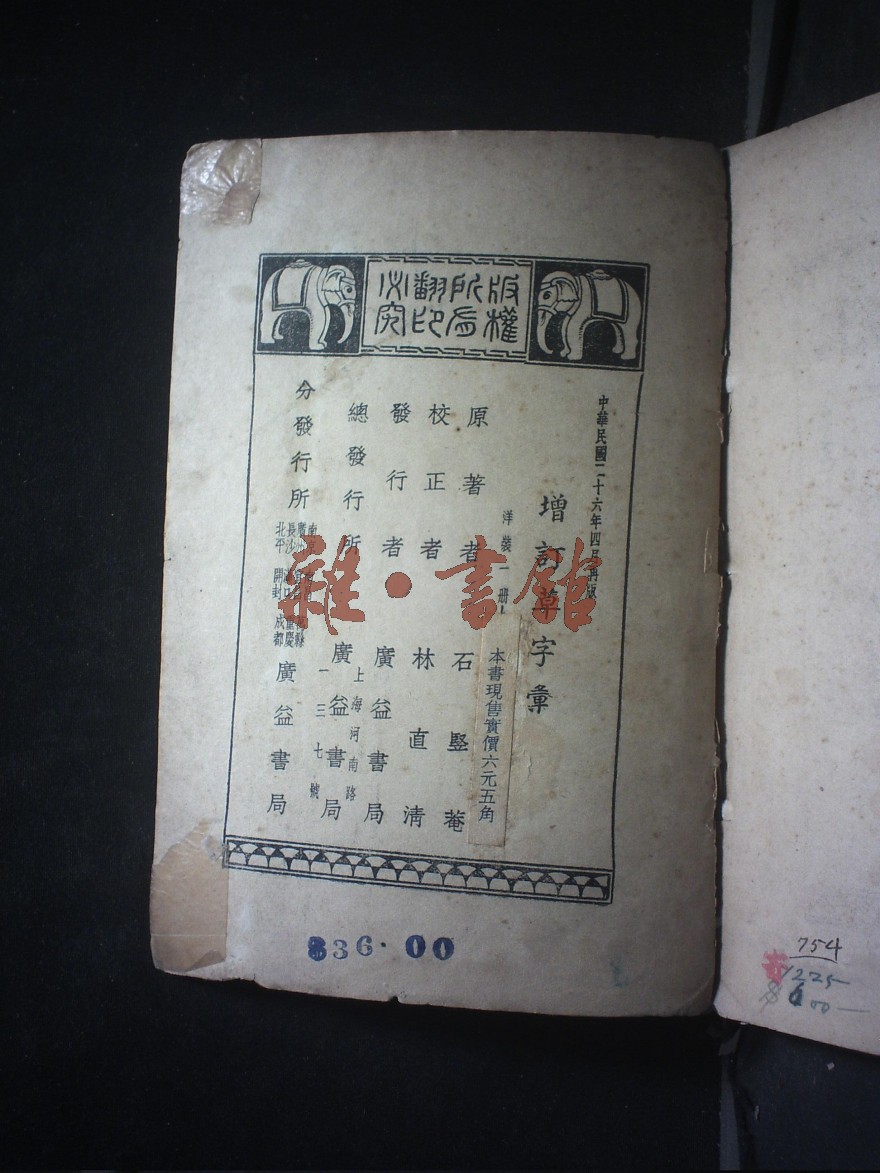 版權所有翻印必究
中華民國二十六年四月再版
增訂草字彙
洋裝一册
本書現售實價六元五角
原著者 石堅菴
校正者 林直清
發行者 廣益書局
總發行所 上海河南路一三七號 廣益書局
分發行所 南京 廣州 長沙 北平 開封 重慶 成都 廣益書局
雜·書館
836.00
754
1225